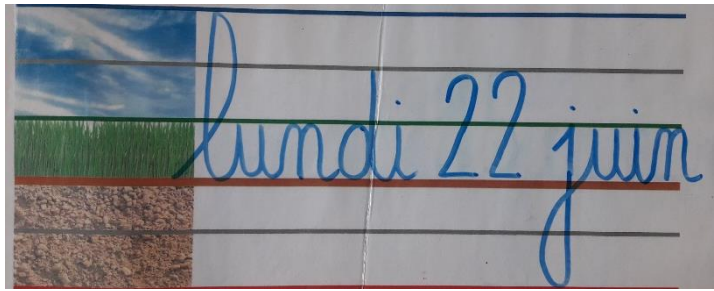 lundi 22 juin